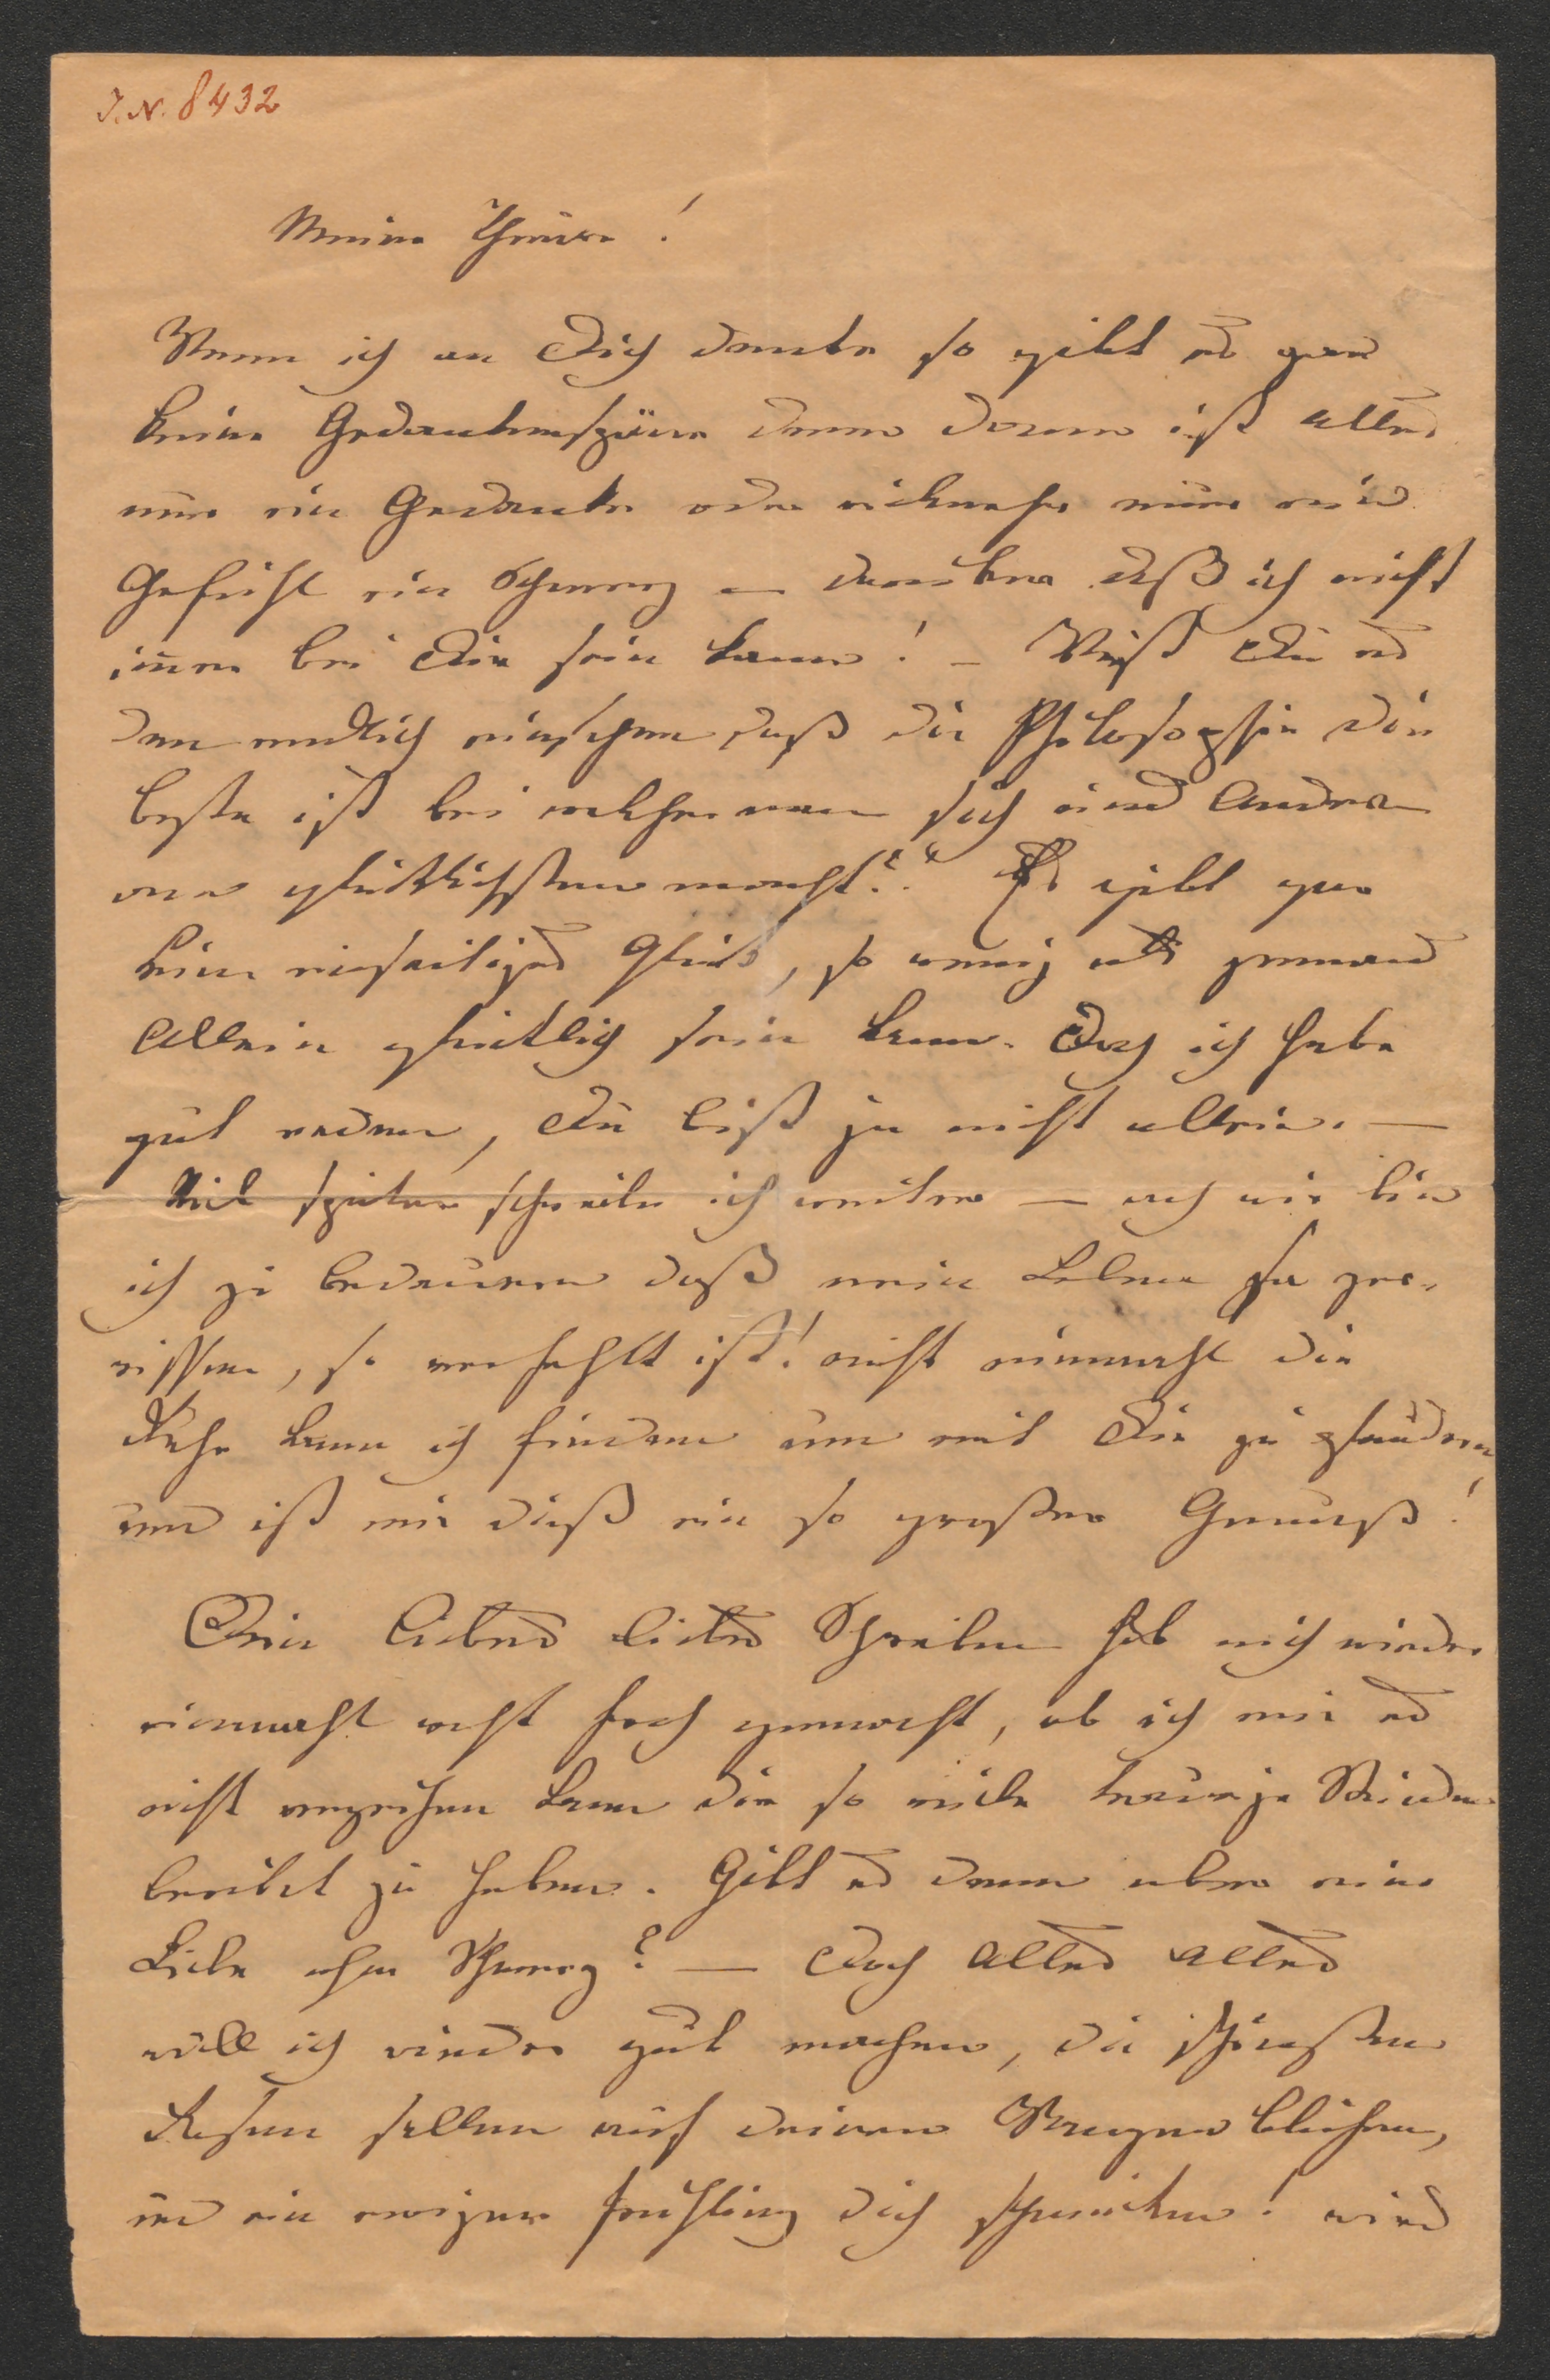 J.N. 8432
Meine Theure!
Wenn ich an Dich denke so gibt es gar
keine Gedankenspäne denn dann ist alles
nur ein Gedanke oder vielmehr nur ein
Gefühl ein Schmerz — darüber daß ich nicht
im̅er bei Dir sein kann! – Wirst Du es
den endlich einsehen daß die Philosophie die
beste ist bei welcher man sich und Andere
am glücklichsten macht?" Es gibt gar
kein einseitiges Glück, so wenig als jemand
Allein glücklich sein kann. Doch ich habe
gut reden, Du bist ja nicht allein. —
Viel später schreibe ich weiter — ach wie bin
ich zu bedauern daß mein Leben so zer-
rissen, so verfehlt ist! nicht einmahl die
Ruhe kann ich finden um mit Dir zu plaudern
und ist mir dieß ein so großer Genuß!
Dein liebes liebes Schreiben hat mich wieder
einmahl recht froh gemacht, ob ich mir es
nicht verzeihen kann dir so viele traurige Stunden
bereitet zu haben. Gibt es denn aber eine
Liebe ohne Schmerz? — Doch Alles Alles
will ich wieder gut machen, die schönsten
Rosen sollen auf deinen Wangen blühen,
und ein ewiger Frühling dich schmücken! wird